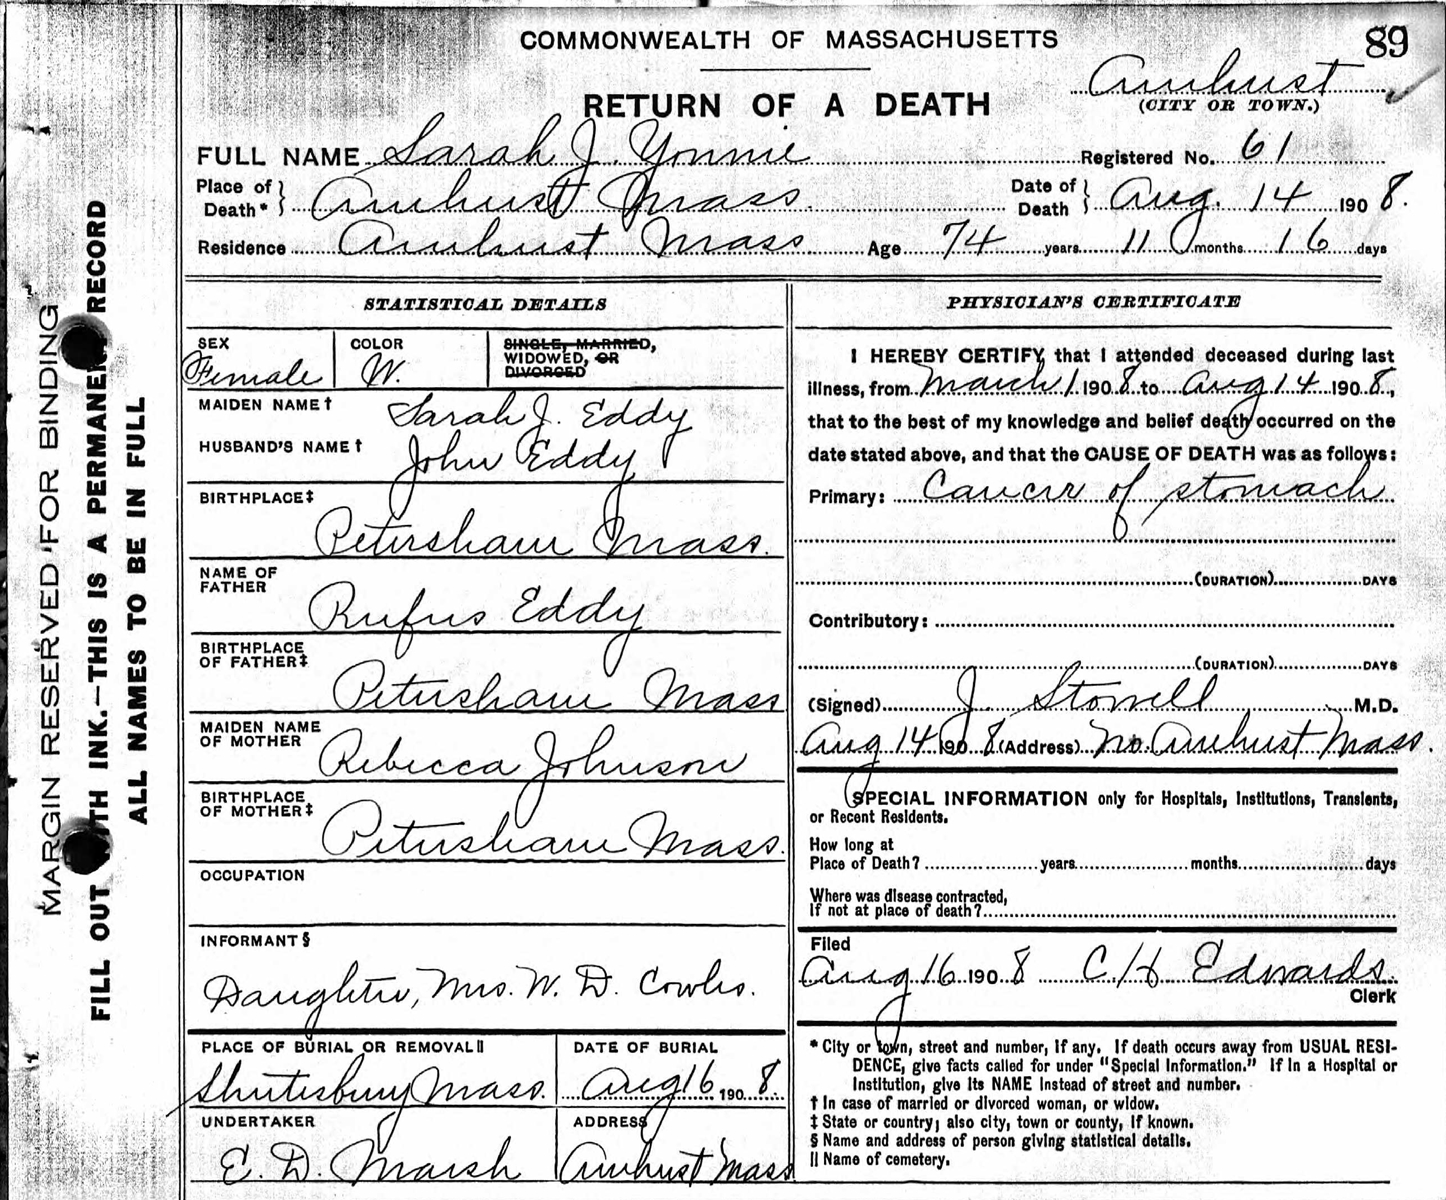 COMMONWEALTH OF MASSACHUSETTS
89
Amherst
(CITY OR TOWN.)
RETURN OF A DEATH
FULL NAME Sarah J. Yonnie Registered No. 61
Place of Death* } Amherst Mass. Date of Death } Aug. 14 1908.
Residence Amherst Mass Age 74 years 11 months 16 days
MARGIN RESERVED FOR BINDING
FILL OUT WITH INK.—THIS IS A PERMANENT RECORD
ALL NAMES TO BE IN FULL
STATISTICAL DETAILS
SEX
Female
COLOR
W.
SINGLE, MARRIED,
WIDOWED, OR
DIVORCED
MAIDEN NAME† Sarah J. Eddy
HUSBAND'S NAME† John Eddy
BIRTHPLACE‡
Petersham Mass.
NAME OF
FATHER
Rufus Eddy
BIRTHPLACE
OF FATHER‡
Petersham Mass
MAIDEN NAME
OF MOTHER
Rebecca Johnson
BIRTHPLACE
OF MOTHER‡
Petersham Mass.
OCCUPATION
INFORMANT§
Daughter, Mrs. W. D. Cowls.
PLACE OF BURIAL OR REMOVAL||
Shutesbury Mass.
DATE OF BURIAL
Aug 16 1908.
UNDERTAKER
E. D. Marsh
ADDRESS
Amherst Mass
PHYSICIAN'S CERTIFICATE
I HEREBY CERTIFY that I attended deceased during last
illness, from March 1 1908 to Aug 14 1908,
that to the best of my knowledge and belief death occurred on the
date stated above, and that the CAUSE OF DEATH was as follows:
Primary: Cancer of stomach
(DURATION) DAYS
Contributory:
(DURATION) DAYS
(Signed) J. Stowell M.D.
Aug 14 1908 (Address) No. Amherst Mass.
SPECIAL INFORMATION only for Hospitals, Institutions, Transients,
or Recent Residents.
How long at
Place of Death? years months days
Where was disease contracted,
If not at place of death?
Filed
Aug 16 1908 C. H. Edwards.
Clerk
* City or town, street and number, if any. If death occurs away from USUAL RESI-
DENCE, give facts called for under "Special Information." If in a Hospital or
Institution, give its NAME instead of street and number.
† In case of married or divorced woman, or widow.
‡ State or country; also city, town or county, if known.
§ Name and address of person giving statistical details.
|| Name of cemetery.